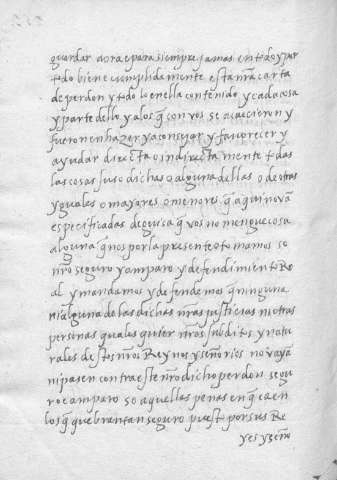 guardar aora e para siempre jamas en todo y por
todo bien e cumplidamente esta nr̃a carta
de perdon y todo lo en ella contenido y cada cosa
y parte dello y a los q̃ con vos se acaecieron y
fueron en hazer y aconsejar y favorecer y
ayudar directa o indirecta mente todas
las cosas suso dichas o alguna dellas o de otras
yguales o mayores o menores q̃ aqui no vã
especificadas de guisa q̃ vos no mengue cosa
alguna q̃ nos por la presente os tomamos so
nr̃o seguro y amparo y defendimiento Re
al y mandamos y defendemos q̃ ninguna
ni alguna de las dichas nr̃as justicias ni otras
personas quales quier nr̃os subditos y natu
rales destos nr̃os Reynos y señorios no vayã
ni pasen contra este nr̃o dicho perdon segu
ro e amparo so aquellas penas en q̃ caen
los q̃ quebrantan seguro puesto por sus Re
yes y señõ